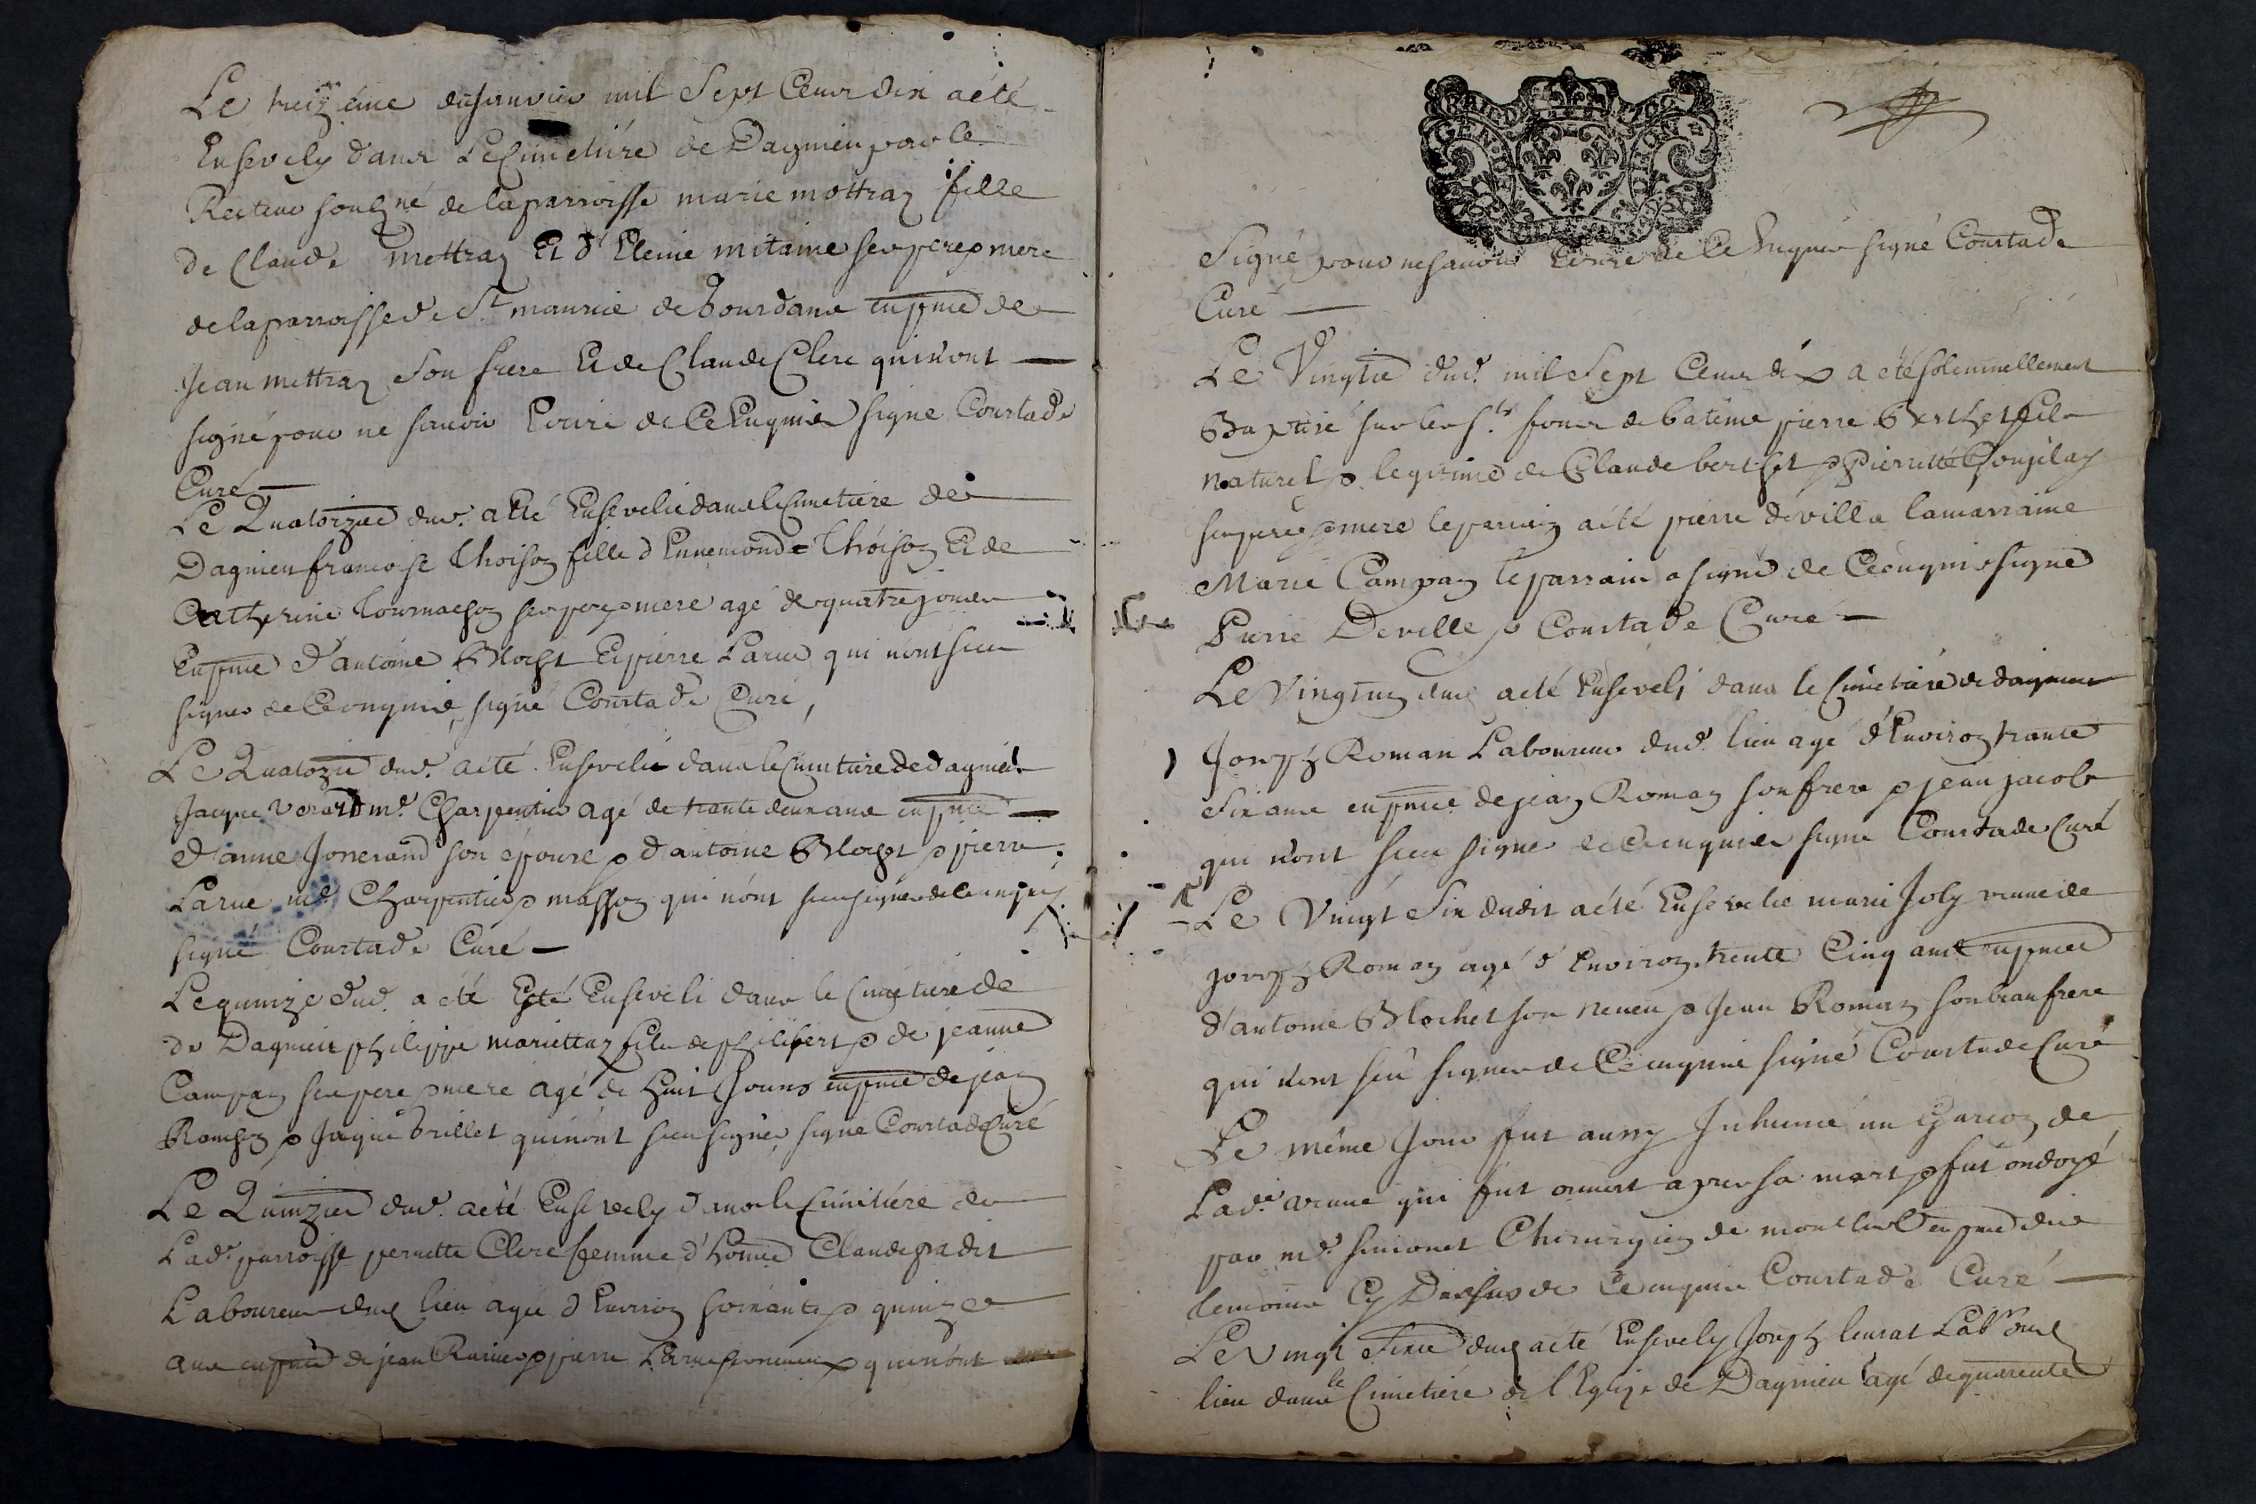 Le treizéme du Janvier mil Sept Cens dix a été
Ensevely dans Le Cimetiére de Dagnieu par le
Recteur sousigné de la parroisse marie mottraz fille
de Claude mettraz Et d'Eleine mitaine ses pere & mere
de la parroisse de St maurice de bourdans en pnce de
Jean mettraz son frere Et de Claude Clerc qui n'ont
signé pour ne sauoir Ecrire de Ce Enquis signé Courtade
Curé
Le Quatorzie dud. a eté Ensevelie dans le Cimetiere de
Dagnieu francoise Thoison fille d'Ennemond Thoison Et de
Catherine Tournachon ses pere & mere agé de quatre jours
En pnce d'antoine Blochet Et pierre Larue qui n'ont sceu
signer de Ce enquis signé Courtade Curé,
Le Quatozie dud. a été Ensevelie dans le Cimetiere de dagnieu
Jacque Verard me. Charpentier agé de trante deux ans en pnce
d'anne Jonerand son épouse & d'antoine Blochet & pierre
Larue me Charpentier & masson qui n'ont sceu signer de ce enquis
signé Courtade Curé
Le quinze dud. a été Eté Enseveli dans le Cimetiere de
de Dagnieu philippe mariettaz fils de philibert & de jeanne
Campan ses pere & mere agé de huit Jours en pnce de jean
Romhon & Jaque brillet qui n'ont sceu signer, signé Courtade Curé
Le Quinzie dud. a été Ensevely dans le Cimitiére de
Lade. parroisse pernette Clerc femme d'honne Claude padit
Laboureur dud lieu agée d'Environ soixante & quinze
ans en pnce de jean & pierre Larue & qui n'ont
Signé pour ne sauoir Ecrire de Ce Enquis signé Courtade
Curé
Le Vingtie dud. mil Sept Cens dix a été solemnellement
Baptisé sur les sts. fons de batéme pierre Berthet fils
naturel & legitime de Claude berthet & Pierrette
ses pere & mere le parrain a été pierre déville la marraine
Marie Campan le parrain a signé de Ce enquis signé
Pierre Deville & Courtade Curé
Le Vingtun dud a été Enseveli dans le Cimetiére de dagnieu
Joseph Roman Laboureur dud. lieu agé d'Environ trante
Six ans en pnce de jean Roman son frere & jean jacob
qui n'ont sceu signer de Ce enquis signé Courtade Curé
Le Vingt Six dudit a été Ensevelie marie Joly veuue de
joseph Roman agé d'Environ trente Cinq ans en pnce
d'antoine Blochet son neveu & Jean Roman son beaufrere
qui n'ont sceu signer de Ce enquis signé Courtade Curé
Le même Jour fut aussy Inhumé un Garcon de
Lade. veuue qui fut ouuert apres sa mort & fut ondoyé
par me. simonet Chirurgien de monluel en pnce des
temoins Cy Dessus de Ce enquis Courtade Curé
Le Vingt Sixie dud a été Ensevely Joseph leurat Labr dud
lieu dans le Cimetiére de l'Eglise de Dagnieu agé de quarente